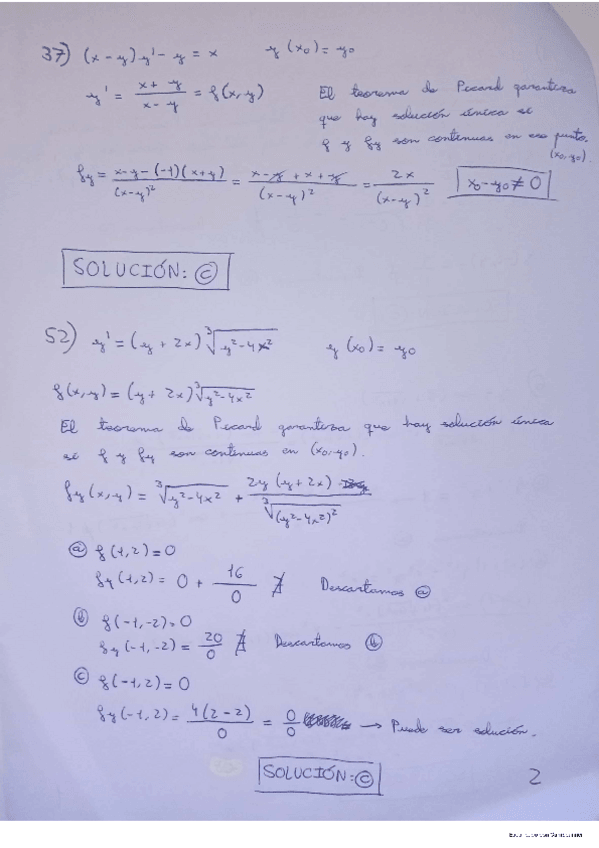 37) (x-y)y' - y = x    y(x0) = y0
y' = (x+y)/(x-y) = f(x,y)    El teorema de Picard garantiza
que hay solución única si
f y fy son continuas en ese punto.
(x0,y0)
fy = (x-y-(-1)(x+y))/(x-y)² = (x-y+x+y)/(x-y)² = 2x/(x-y)²    x0-y0≠0
SOLUCIÓN: ⓒ
52) y' = (y+2x) ∛(y²-4x²)    y(x0) = y0
f(x,y) = (y+2x) ∛(y²-4x²)
El teorema de Picard garantiza que hay solución única
si f y fy son continuas en (x0,y0).
fy(x,y) = ∛(y²-4x²) + 2y(y+2x)/∛((y²-4x²)²)
ⓐ f(1,2)=0
fy(1,2) = 0 + 16/0 ∄    Descartamos ⓐ
ⓑ f(-1,-2)=0
fy(-1,-2) = 20/0 ∄    Descartamos ⓑ
ⓒ f(-1,2)=0
fy(-1,2) = 4(2-2)/0 = 0/0 → Puede ser solución.
SOLUCIÓN: ⓒ
2